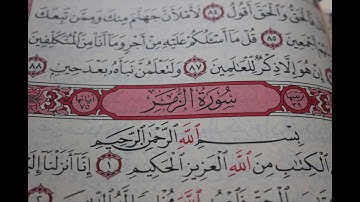 فَالْحَقُّ وَالْحَقَّ أَقُولُ ٨٤ لَأَمْلَأَنَّ جَهَنَّمَ مِنكَ وَمِمَّن تَبِعَكَ
أَجْمَعِينَ ٨٥ قُلْ مَا أَسْـَٔلُكُمْ عَلَيْهِ مِنْ أَجْرٍ وَمَا أَنَا مِنَ الْمُتَكَلِّفِينَ
إِنْ هُوَ إِلَّا ذِكْرٌ لِّلْعَالَمِينَ ٨٧ وَلَتَعْلَمُنَّ نَبَأَهُ بَعْدَ حِينٍ ٨٨
سُورَةُ الزُّمَرِ
بِسْمِ اللَّهِ الرَّحْمَٰنِ الرَّحِيمِ
الْكِتَابِ مِنَ اللَّهِ الْعَزِيزِ الْحَكِيمِ ١ إِنَّا أَنزَلْنَا إِلَيْكَ